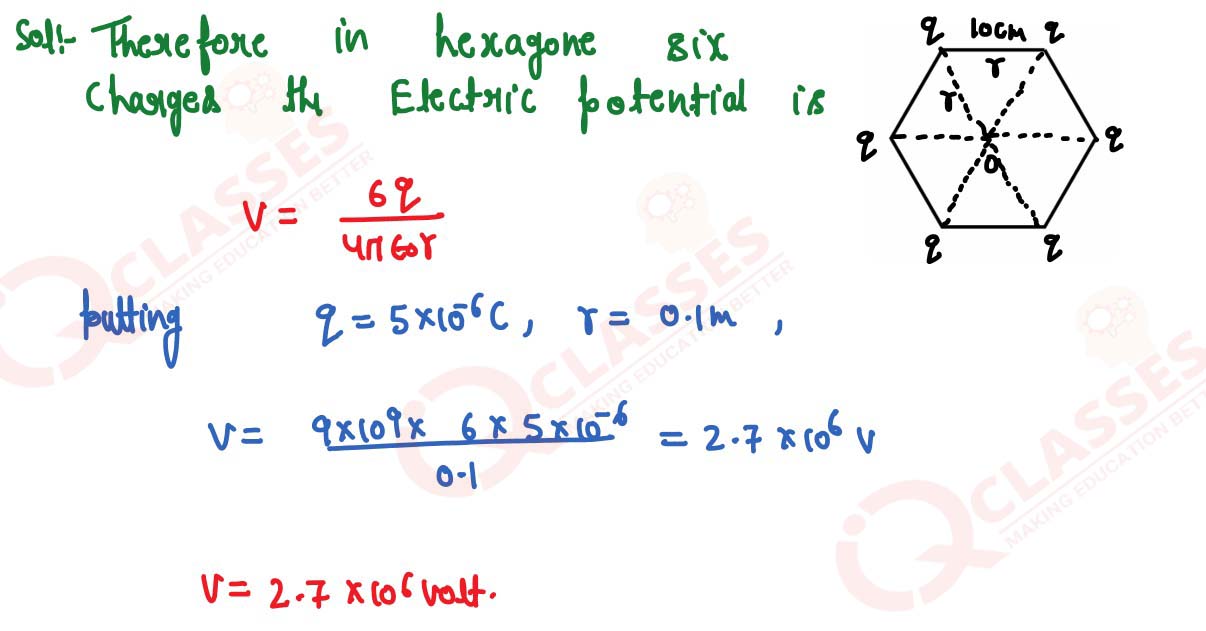 Sol!- Therefore in hexagone six
Charges the Electric potential is
V = 6q / 4π∈or
putting q = 5×10⁻⁶C, r = 0.1m ,
V = 9×10⁹× 6 × 5×10⁻⁶ / 0.1 = 2.7 ×10⁶ V
V = 2.7 ×10⁶ volt.
q 10cm q
r
r
q q
O
q q
CLASSES
MAKING EDUCATION BETTER
CLASSES
MAKING EDUCATION BETTER
CLASSES
MAKING EDUCATION BETTER